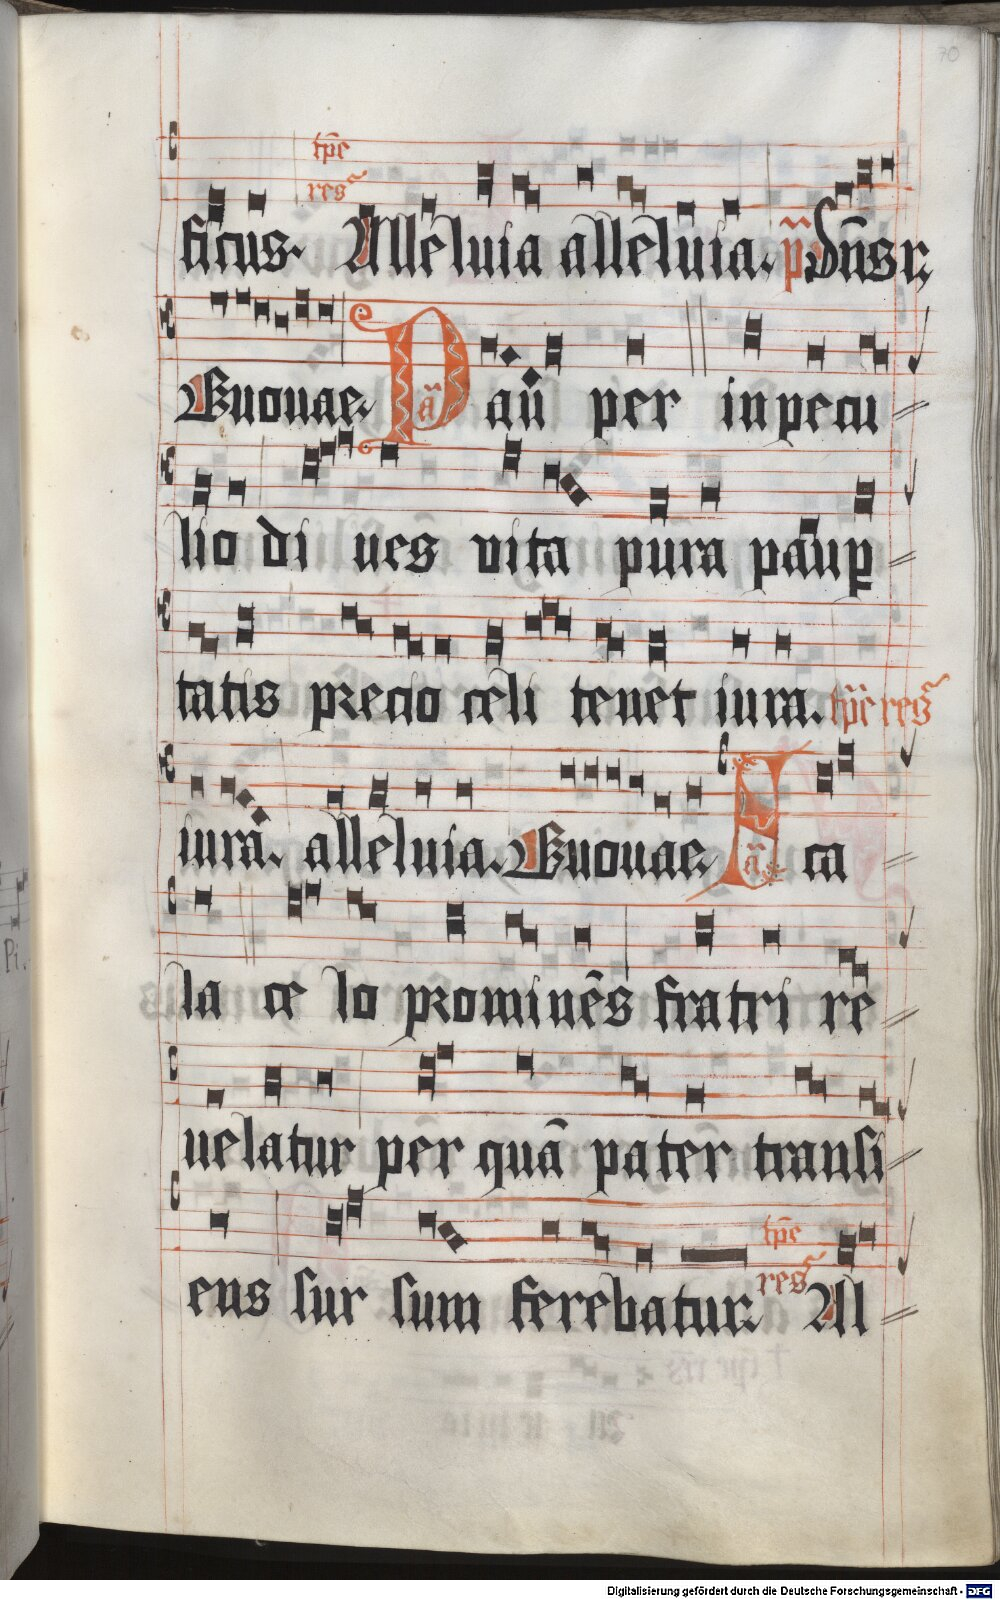 70
tp̄e
res
ficus. Alleluia alleluia. p̄s Dn̄s r,
Euouae. P
ā aū per in pecu
lio di ues vita pura paup
tatis precio celi tenet iura. tp̄e res
iurā. alleluia. Euouae. F ā ca
la ce lo prominēs fratri re
uelatur per quā pater transi
tp̄e
eus sur sum ferebatur. res Al
Pi.
Digitalisierung gefördert durch die Deutsche Forschungsgemeinschaft - DFG